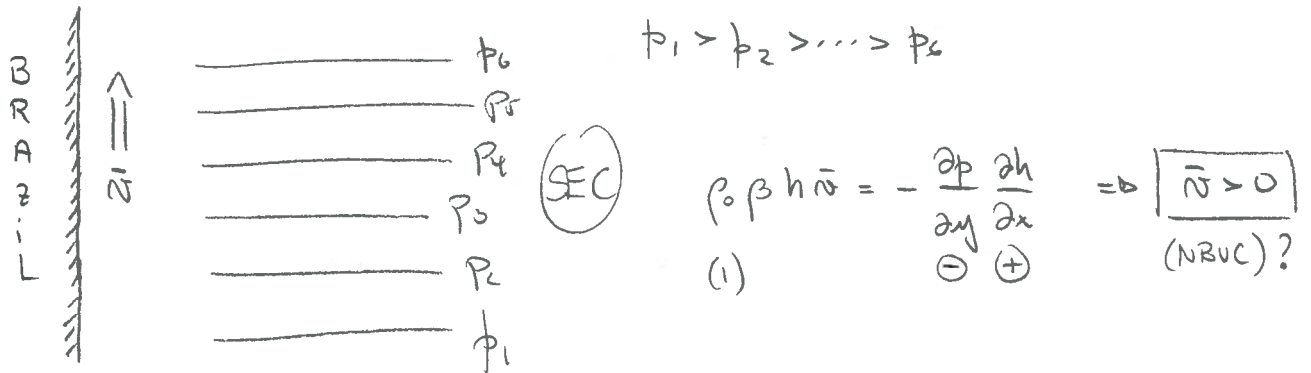 BRAZiL
v̄
p6
p5
p4
p3
p2
p1
SEC
p1 > p2 > ···· > p6
ρ0 β h v̄ = - ∂p/∂y ∂h/∂x => v̄ > 0
(1) ⊖ ⊕ (NBUC)?